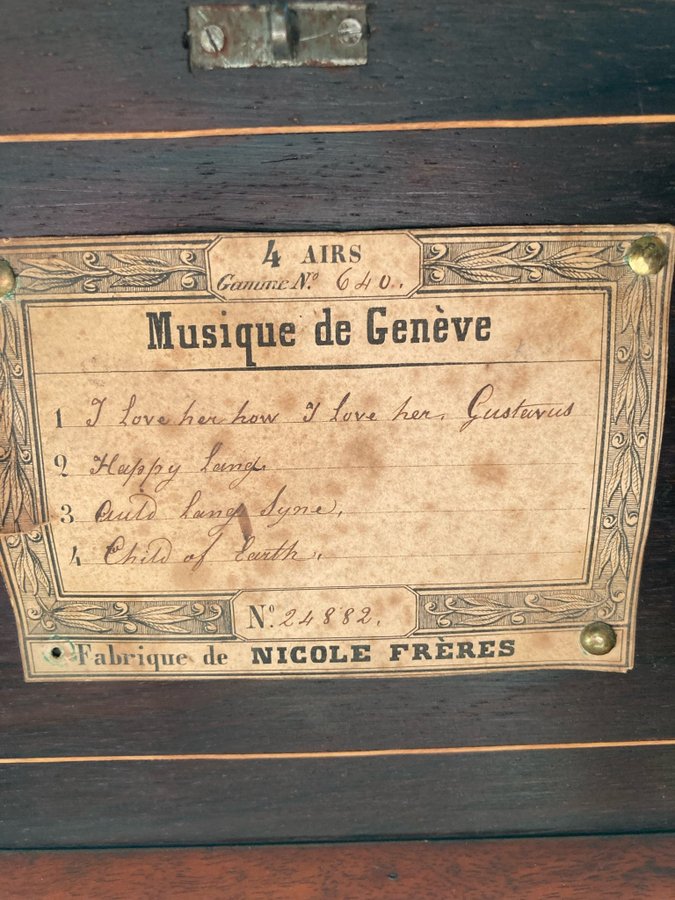 4 AIRS
Gamme Nº 640.
Musique de Genève
1 I love her how I love her. Gustavus
2 Happy land.
3 Auld lang Syne.
4 Child of Earth.
Nº 24882.
Fabrique de NICOLE FRÈRES